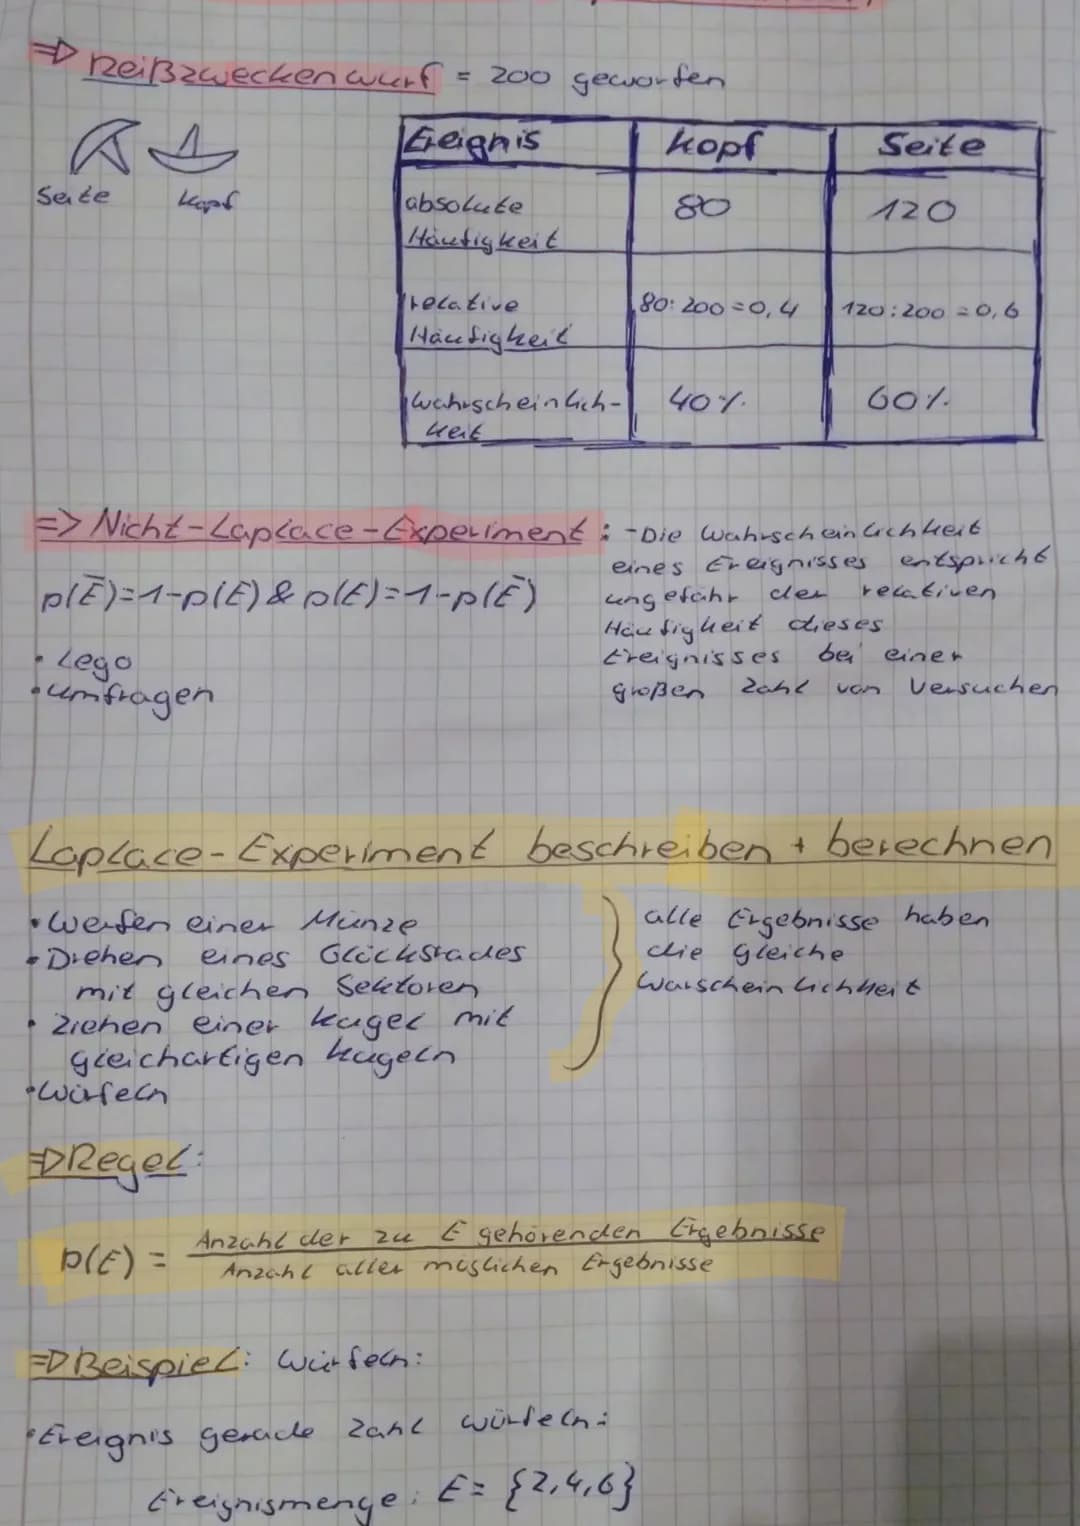 => Reißzweckenwurf = 200 geworfen
Seite Kopf
Ereignis Kopf Seite
absolute Häufigkeit 80 120
relative Häufigkeit 80:200=0,4 120:200=0,6
Wahrscheinlich-
keit 40% 60%
=> Nicht-Laplace-Experiment: -Die Wahrscheinlichkeit
eines Ereignisses entspricht
ungefähr der relativen
Häufigkeit dieses
Ereignisses bei einer
großen Zahl von Versuchen
p(Ē)=1-p(E) & p(E)=1-p(Ē)
• Lego
• Umfragen
Laplace-Experiment beschreiben + berechnen
• Werfen einer Münze
• Drehen eines Glücksrades
mit gleichen Sektoren
• Ziehen einer Kugel mit
gleichartigen Kugeln
• Würfeln
alle Ergebnisse haben
die gleiche
Warscheinlichkeit
=> Regel:
p(E) = Anzahl der zu E gehörenden Ergebnisse
Anzahl aller möglichen Ergebnisse
=> Beispiel: Würfeln:
• Ereignis gerade Zahl würfeln:
Ereignismenge: E= {2,4,6}